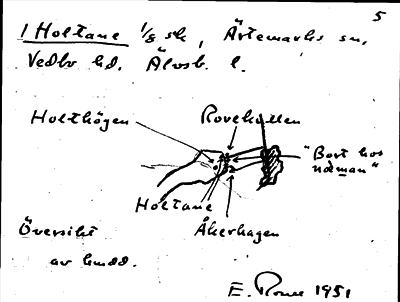 5
1 Holtane 1/8 sk, Ärtemarks sn,
Vedbo hd. Älvsb. l.
Holthögen
Rovehallen
"Bort hos
nôman"
Holtane
Åkerhagen
Översikt
av hmdd.
E. Rome 1951